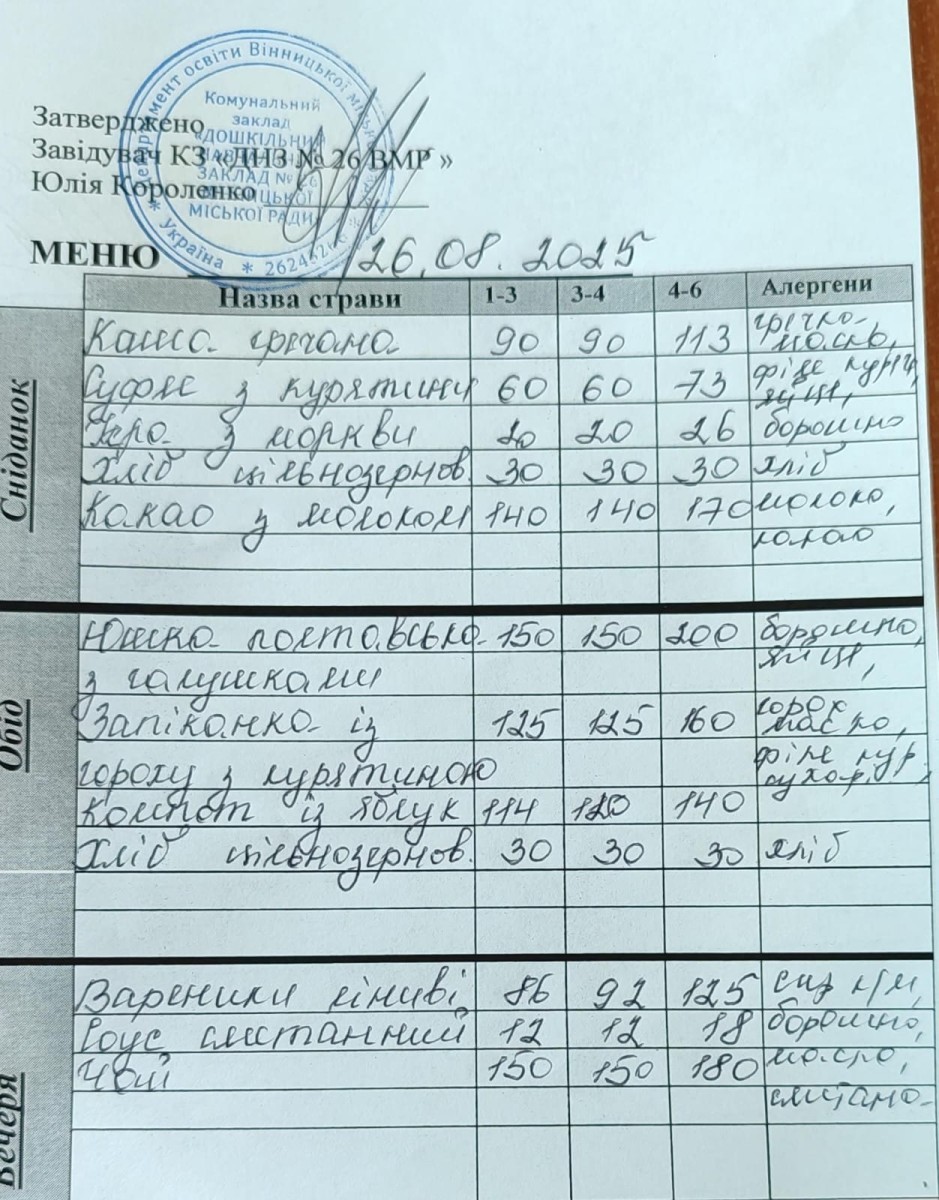 Департамент освіти Вінницької міської ради
* Україна * 2624526
Комунальний
заклад
«ДОШКІЛЬНИЙ
НАВЧАЛЬНИЙ
ЗАКЛАД № 26
ВІННИЦЬКОЇ
МІСЬКОЇ РАДИ
Затверджено
Завідувач КЗ «ДНЗ № 26 ВМР »
Юлія Короленко
МЕНЮ 26.08.2025
Назва страви 1-3 3-4 4-6 Алергени
Сніданок
Каша гречана 90 90 113 гречка
масло,
Суфле з курятини 60 60 73 філе курч,
яйця,
Ікра з моркви 20 20 26 борошно
Хліб цільнозернов. 30 30 30 хліб
Какао з молоком 140 140 170 молоко,
какао
Обід
Юшка полтавська 150 150 200 борошно,
з галушками яйця,
Запіканка із 125 125 160 горох
масло,
гороху з курятиною філе кур.
сухар.
Компот із яблук 114 120 140
Хліб цільнозернов. 30 30 30 хліб
Вечеря
Вареники ліниві 86 92 125 сир к/м,
Соус сметанний 12 12 18 борошно,
Чай 150 150 180 масло,
сметана